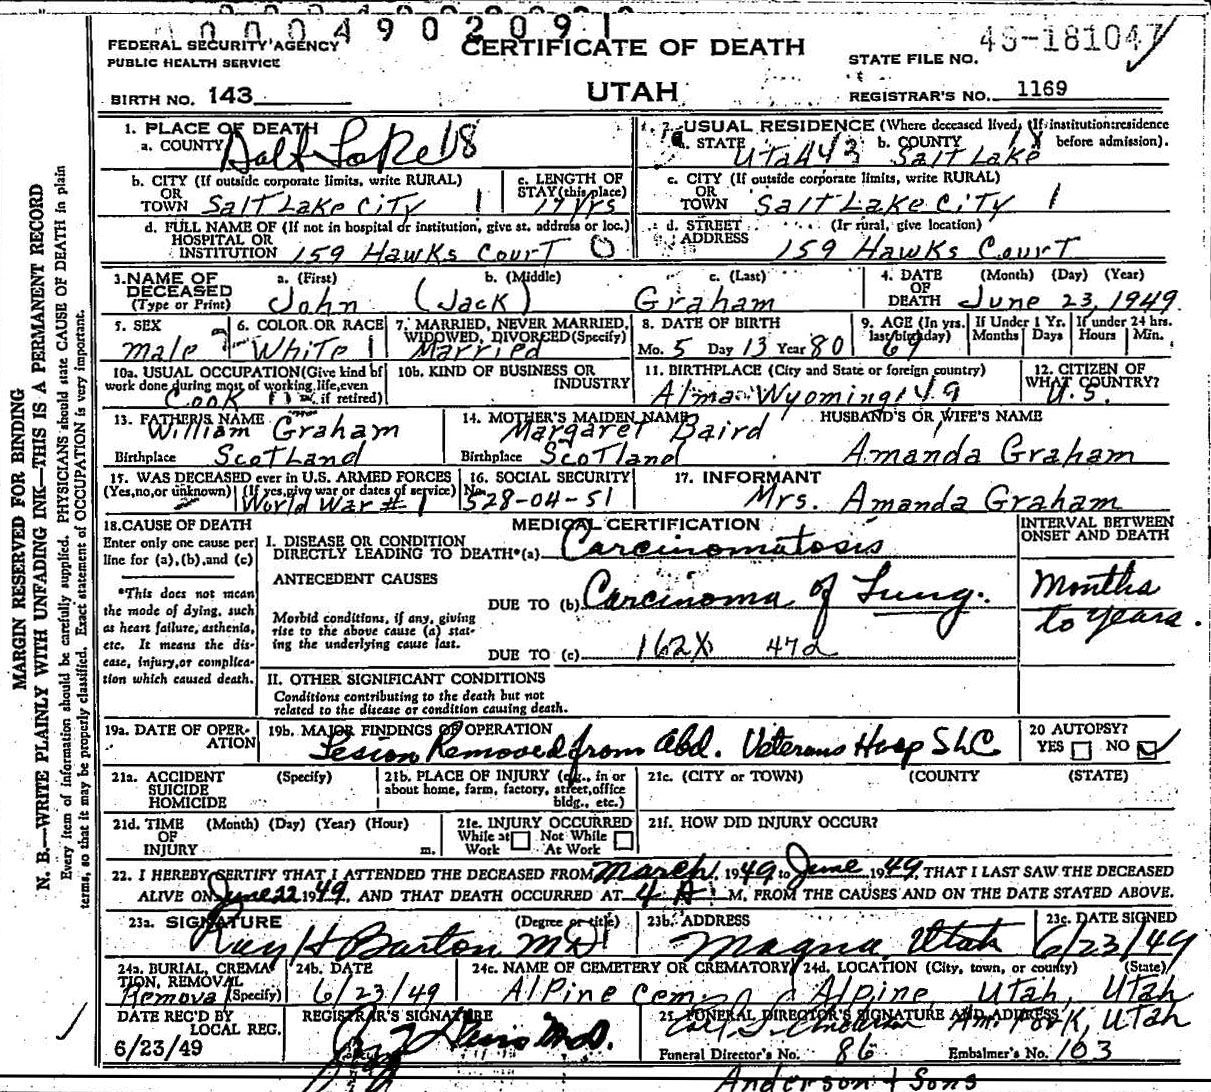 0 0 0 4 9 0 2 0 9 1
FEDERAL SECURITY AGENCY
PUBLIC HEALTH SERVICE
CERTIFICATE OF DEATH
UTAH
49-181047
STATE FILE NO.
BIRTH NO. 143
REGISTRAR'S NO. 1169
MARGIN RESERVED FOR BINDING
N. B.—WRITE PLAINLY WITH UNFADING INK—THIS IS A PERMANENT RECORD
Every item of information should be carefully supplied. PHYSICIANS should state CAUSE OF DEATH in plain
terms, so that it may be properly classified. Exact statement of OCCUPATION is very important.
1. PLACE OF DEATH
a. COUNTY Salt Lake 18
2. USUAL RESIDENCE (Where deceased lived. If institution: residence
a. STATE Utah 43 b. COUNTY Salt Lake 18 before admission).
b. CITY (If outside corporate limits, write RURAL)
OR
TOWN Salt Lake City 1
c. LENGTH OF
STAY (this place)
17 yrs
c. CITY (If outside corporate limits, write RURAL)
OR
TOWN Salt Lake City 1
d. FULL NAME OF (If not in hospital or institution, give st. address or loc.)
HOSPITAL OR
INSTITUTION 159 Hawks Court 0
d. STREET (If rural, give location)
ADDRESS 159 Hawks Court
3. NAME OF
DECEASED
(Type or Print)
a. (First) b. (Middle) c. (Last)
John (Jack) Graham
4. DATE (Month) (Day) (Year)
OF
DEATH June 23, 1949
5. SEX
Male
6. COLOR OR RACE
White 1
7. MARRIED, NEVER MARRIED,
WIDOWED, DIVORCED (Specify)
Married
8. DATE OF BIRTH
Mo. 5 Day 13 Year 80
9. AGE (In yrs.
last birthday)
69
If Under 1 Yr.
Months Days
If under 24 hrs.
Hours Min.
10a. USUAL OCCUPATION (Give kind of
work done during most of working life, even
if retired)
Cook
10b. KIND OF BUSINESS OR
INDUSTRY
11. BIRTHPLACE (City and State or foreign country)
Alma Wyoming 49
12. CITIZEN OF
WHAT COUNTRY?
U.S.
13. FATHER'S NAME
William Graham
Birthplace Scotland
14. MOTHER'S MAIDEN NAME
Margaret Baird
Birthplace Scotland
HUSBAND'S OR WIFE'S NAME
Amanda Graham
15. WAS DECEASED ever in U.S. ARMED FORCES
(Yes, no, or unknown) (If yes, give war or dates of service)
World War # 1
16. SOCIAL SECURITY
No. 528-04-51
17. INFORMANT
Mrs. Amanda Graham
18. CAUSE OF DEATH
Enter only one cause per
line for (a), (b), and (c)
*This does not mean
the mode of dying, such
as heart failure, asthenia,
etc. It means the dis-
ease, injury, or complica-
tion which caused death.
MEDICAL CERTIFICATION
I. DISEASE OR CONDITION
DIRECTLY LEADING TO DEATH*(a) Carcinomatosis
ANTECEDENT CAUSES
DUE TO (b) Carcinoma of Lung.
Morbid conditions, if any, giving
rise to the above cause (a) stat-
ing the underlying cause last.
DUE TO (c) 162X 47d
INTERVAL BETWEEN
ONSET AND DEATH
Months
to years.
II. OTHER SIGNIFICANT CONDITIONS
Conditions contributing to the death but not
related to the disease or condition causing death.
19a. DATE OF OPER-
ATION
19b. MAJOR FINDINGS OF OPERATION
Lesion Removed from Abd. Veterans Hosp SLC
20 AUTOPSY?
YES NO
21a. ACCIDENT (Specify)
SUICIDE
HOMICIDE
21b. PLACE OF INJURY (e.g., in or
about home, farm, factory, street, office
bldg., etc.)
21c. (CITY or TOWN) (COUNTY) (STATE)
21d. TIME (Month) (Day) (Year) (Hour)
OF
INJURY m.
21e. INJURY OCCURRED
While at Work Not While At Work
21f. HOW DID INJURY OCCUR?
22. I HEREBY CERTIFY THAT I ATTENDED THE DECEASED FROM March, 1949 to June 1949 THAT I LAST SAW THE DECEASED
ALIVE ON June 22 1949. AND THAT DEATH OCCURRED AT 4 A M. FROM THE CAUSES AND ON THE DATE STATED ABOVE.
23a. SIGNATURE (Degree or title)
Ray H Barton MD
23b. ADDRESS
Magna, Utah
23c. DATE SIGNED
6/23/49
24a. BURIAL, CREMA
TION, REMOVAL
Removal (Specify)
24b. DATE
6/23/49
24c. NAME OF CEMETERY OR CREMATORY
Alpine Cem.
24d. LOCATION (City, town, or county) (State)
Alpine Utah, Utah
DATE REC'D BY
LOCAL REG.
6/23/49
REGISTRAR'S SIGNATURE
M.D.
25. FUNERAL DIRECTOR'S SIGNATURE AND ADDRESS
Anderson Am. Fork, Utah
Funeral Director's No. 86 Embalmer's No. 103
Anderson & Sons